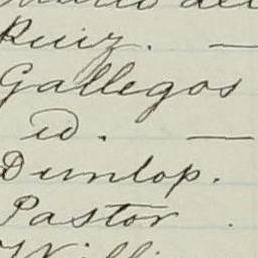 Ruiz. —
Gallegos
id. —
Dunlop.
Pastor .